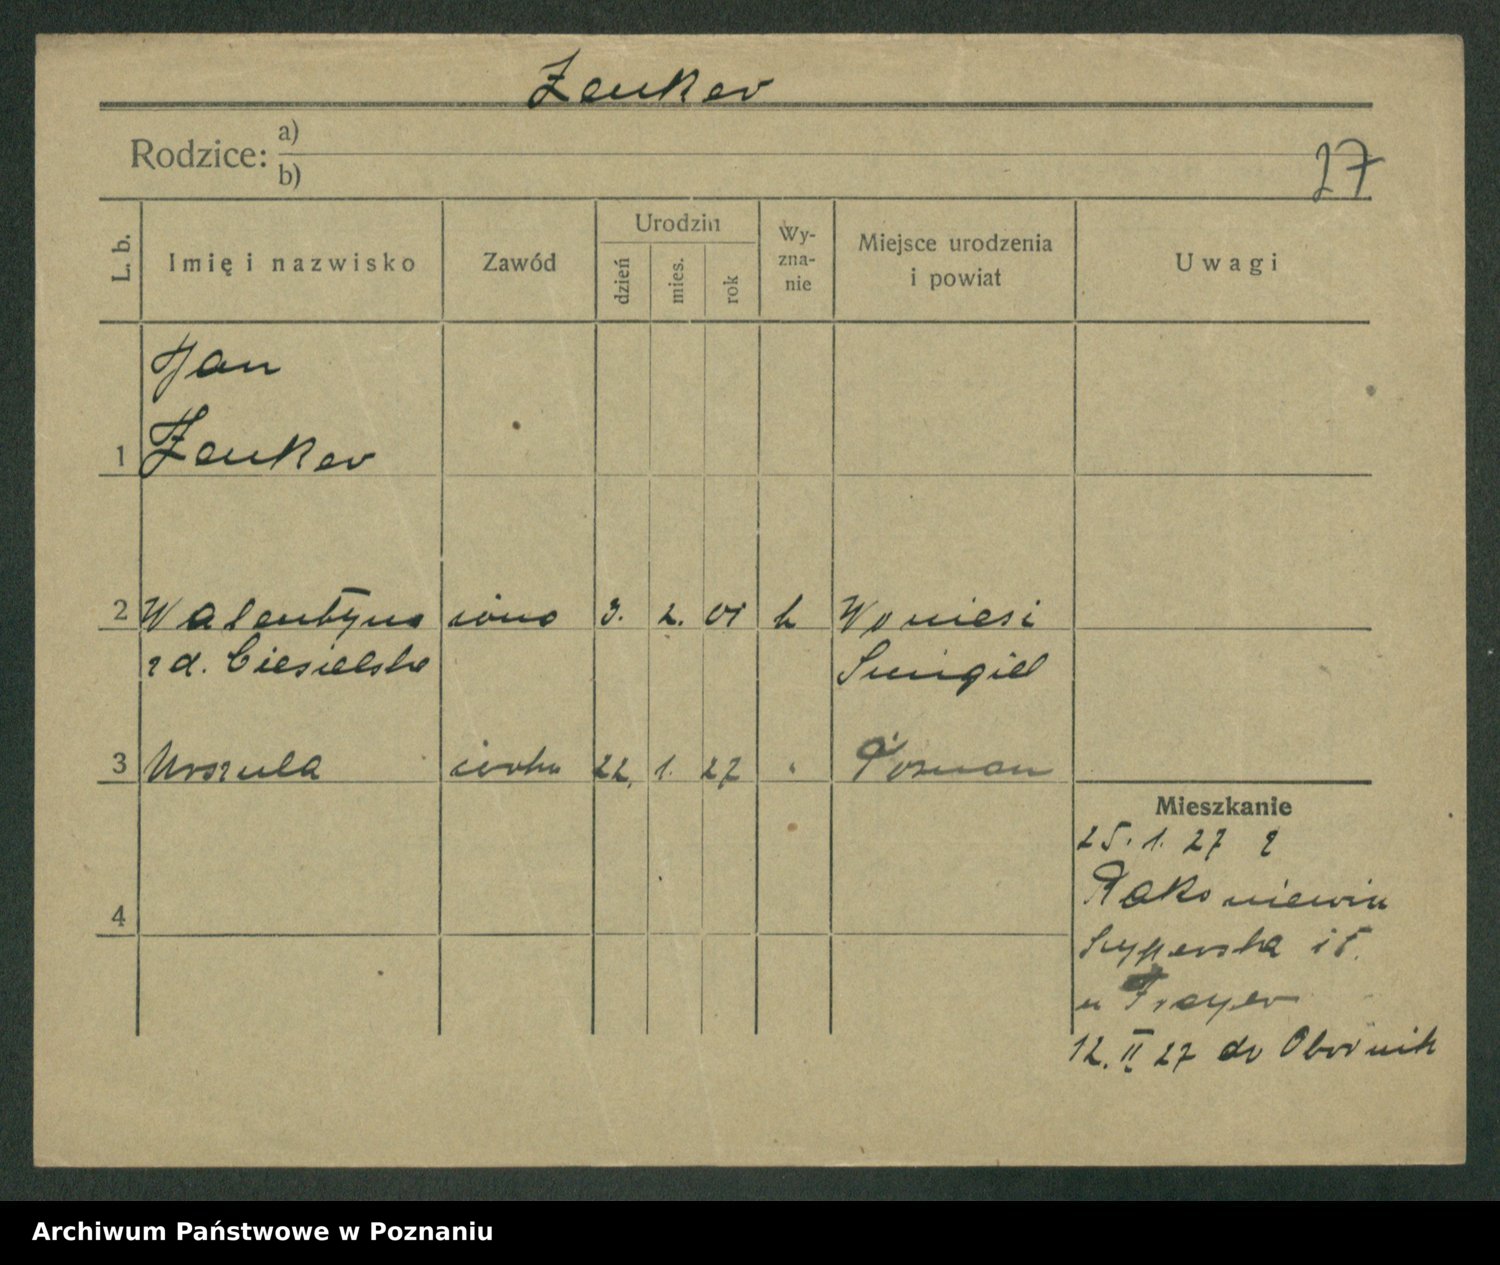 Zenker
Rodzice: a)
b)
27
L. b.
Imię i nazwisko
Zawód
Urodzin
dzień
mies.
rok
Wy-
zna-
nie
Miejsce urodzenia
i powiat
Uwagi
Jan
1 Zenker
2 Walentyna żona 3. 2. 01 k Woniesi
zd. Ciesielska Śmigiel
3 Urszula córka 22. 1. 27 Poznan
Mieszkanie
25. 1. 27 z
Rakoniewic
4
Szyperska 15.
u
12. II 27 do Obornik
Archiwum Państwowe w Poznaniu